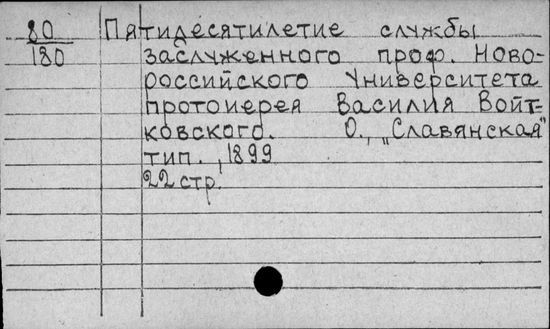 80 Пятидесятилетие службы
180 заслуженного проф. Ново-
российского Университета
протоиерея Василия Войт-
ковского. О., „Славянская"
тип., 1899
22 стр.